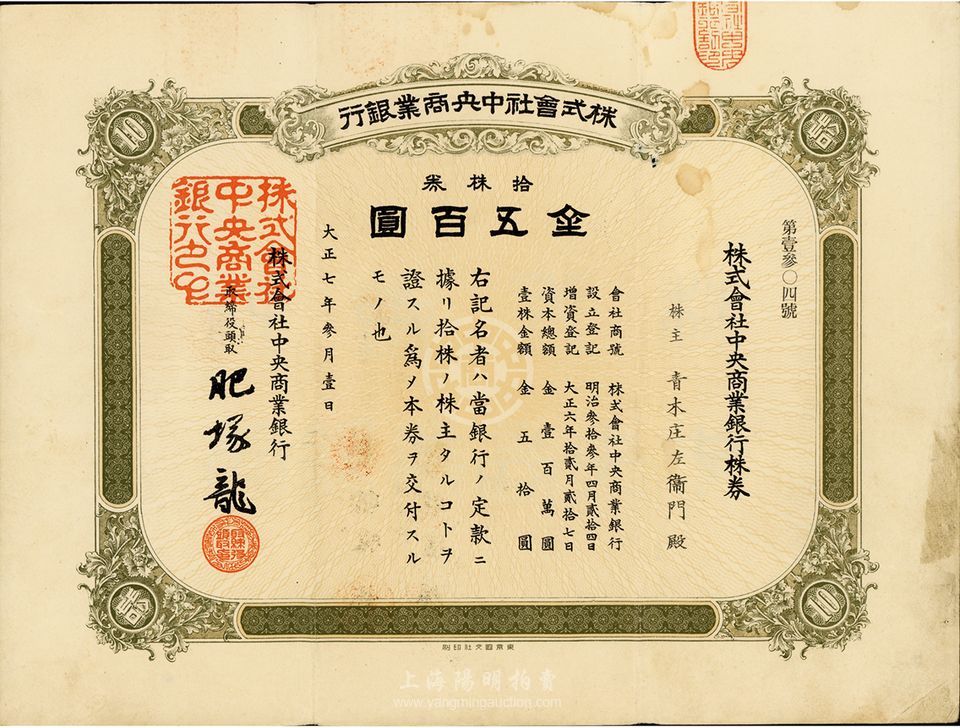 株式會社中央商業銀行
拾株券
金五百圓
第壹參〇四號
株式會社中央商業銀行株券
株主 青木庄左衞門殿
會社商號 株式會社中央商業銀行
設立登記 明治參拾參年四月貳拾四日
增資登記 大正六年拾貳月貳拾七日
資本總額 金壹百萬圓
壹株金額 金五拾圓
右記名者ハ當銀行ノ定款ニ
據リ拾株ノ株主タルコトヲ
證スル爲メ本券ヲ交付スル
モノ也
大正七年參月壹日
株式會社中央商業銀行
取締役頭取
肥塚龍
株式會社
中央商業
銀行之印
10
拾
拾
10
東京國文社印刷
上海陽明拍賣
www.yangmingauction.com